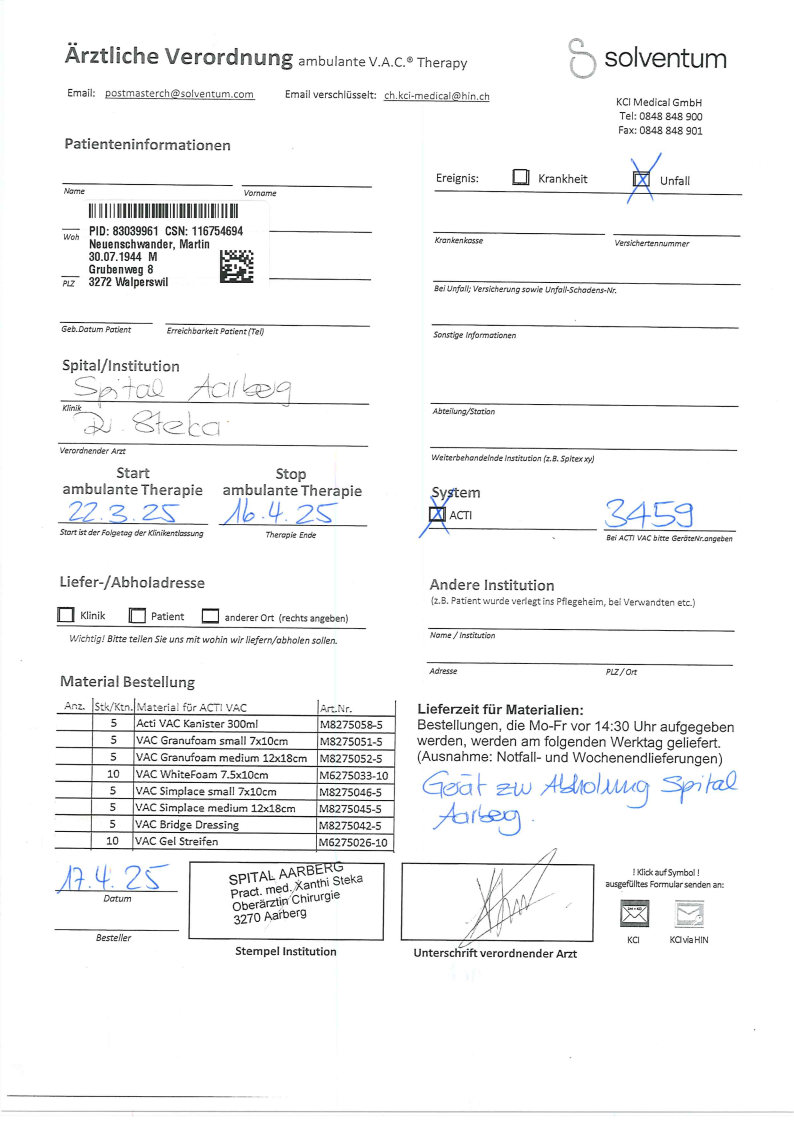 Ärztliche Verordnung ambulante V.A.C.® Therapy
solventum
Email: postmasterch@solventum.com Email verschlüsselt: ch.kci-medical@hin.ch
KCI Medical GmbH
Tel: 0848 848 900
Fax: 0848 848 901
Patienteninformationen
Name Vorname
PID: 83039961 CSN: 116754694
Neuenschwander, Martin
30.07.1944 M
Grubenweg 8
3272 Walperswil
Woh
PLZ
Geb.Datum Patient Erreichbarkeit Patient (Tel)
Ereignis: Krankheit Unfall
Krankenkasse Versichertennummer
Bei Unfall; Versicherung sowie Unfall-Schadens-Nr.
Sonstige Informationen
Abteilung/Station
Weiterbehandelnde Institution (z.B. Spitex xy)
Spital/Institution
Spital Aarberg
Klinik
Dr. Steka
Verordnender Arzt
Start Stop
ambulante Therapie ambulante Therapie
22.3.25 16.4.25
Start ist der Folgetag der Klinikentlassung Therapie Ende
System
ACTI 3459
Bei ACTI VAC bitte GeräteNr.angeben
Liefer-/Abholadresse
Klinik Patient anderer Ort (rechts angeben)
Wichtig! Bitte teilen Sie uns mit wohin wir liefern/abholen sollen.
Andere Institution
(z.B. Patient wurde verlegt ins Pflegeheim, bei Verwandten etc.)
Name / Institution
Adresse PLZ / Ort
Material Bestellung
Anz. Stk/Ktn. Material für ACTI VAC Art.Nr.
5 Acti VAC Kanister 300ml M8275058-5
5 VAC Granufoam small 7x10cm M8275051-5
5 VAC Granufoam medium 12x18cm M8275052-5
10 VAC WhiteFoam 7.5x10cm M6275033-10
5 VAC Simplace small 7x10cm M8275046-5
5 VAC Simplace medium 12x18cm M8275045-5
5 VAC Bridge Dressing M8275042-5
10 VAC Gel Streifen M6275026-10
Lieferzeit für Materialien:
Bestellungen, die Mo-Fr vor 14:30 Uhr aufgegeben
werden, werden am folgenden Werktag geliefert.
(Ausnahme: Notfall- und Wochenendlieferungen)
Gerät zu Abholung Spital
Aarberg.
17.4.25
Datum
Besteller
SPITAL AARBERG
Pract. med. Xanthi Steka
Oberärztin Chirurgie
3270 Aarberg
Stempel Institution
Unterschrift verordnender Arzt
! Klick auf Symbol !
ausgefülltes Formular senden an:
KCI KCI via HIN